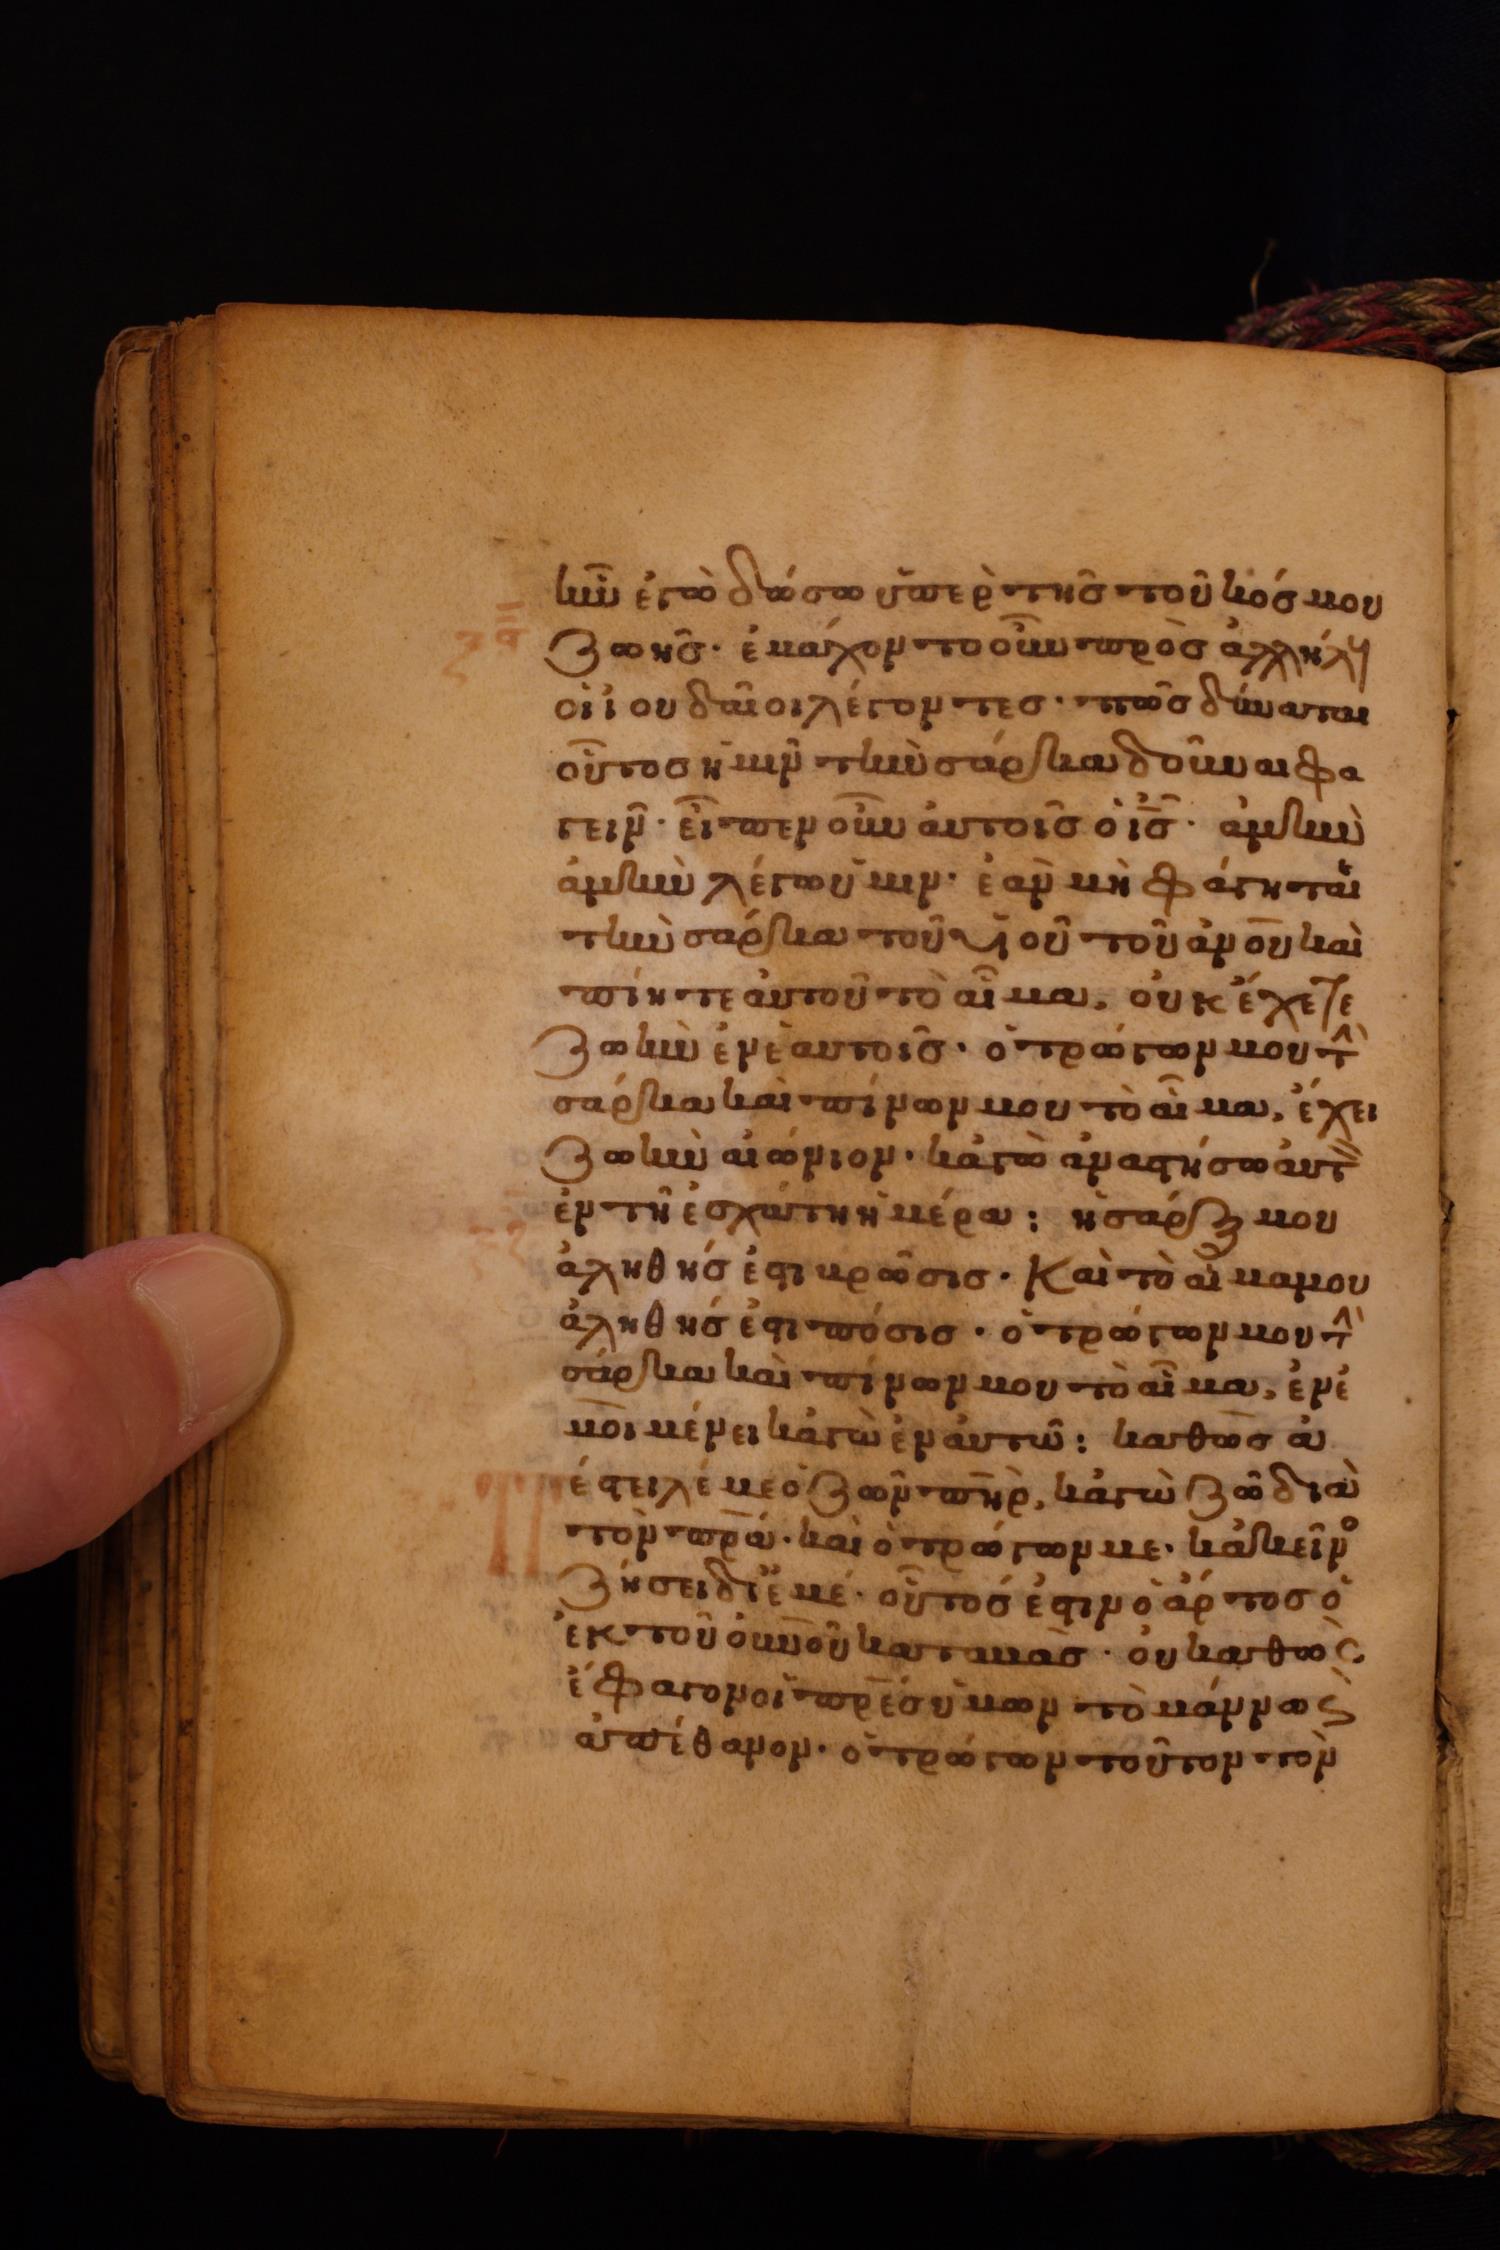 ἣν ἐγὼ δώσω ὑπὲρ τῆς τοῦ κόσμου
ζωῆς· ἐμάχοντο οὖν πρὸς ἀλλήλ
οἱ ἰουδαῖοι λέγοντες· πῶς δύναται
οὗτος ἡμῖν τὴν σάρκα δοῦναι φα
γεῖν· εἶπεν οὖν αὐτοῖς ὁ ι̅ς̅· ἀμὴν
ἀμὴν λέγω ὑμῖν· ἐὰν μὴ φάγηται
τὴν σάρκα τοῦ υἱοῦ τοῦ α̅ν̅ο̅υ̅ καὶ
πίητε αὐτοῦ τὸ αἷμα, οὐκ ἔχετε
ζωὴν ἐν ἑαυτοῖς· ὁ τρώγων μου τὴν
σάρκα καὶ πίνων μου τὸ αἷμα, ἔχει
ζωὴν αἰώνιον· κἀγὼ ἀναστήσω αὐτ
ἐν τῇ ἐσχάτῃ ἡμέρα: ἡ σάρξ μου
ἀληθής ἐστι βρῶσις· Καὶ τὸ αἷμα μου
ἀληθής ἐστι πόσις· ὁ τρώγων μου τὴν
σάρκα καὶ πίνων μου τὸ αἷμα, ἐν ἐ
μοὶ μένει κἀγὼ ἐν αὐτῶ: καθὼς ἀ
έστειλέ με ὁ ζῶν π̅η̅ρ̅, κἀγὼ ζῶ διὰ
τὸν π̅ρ̅α̅· καὶ ὁ τρώγων με· κἀκεῖνο
ζήσει δι ἐμέ· οὗτός ἐστιν ὁ ἄρτος ὁ
ἐκ τοῦ ο̅υ̅ν̅ο̅υ̅ καταβὰς· οὐ καθὼς
ἔφαγον οἱ π̅ρ̅ε̅ς̅ ὑμῶν τὸ μάννα ς
ἀπέθανον· ὁ τρώγων τοῦτον τὸν